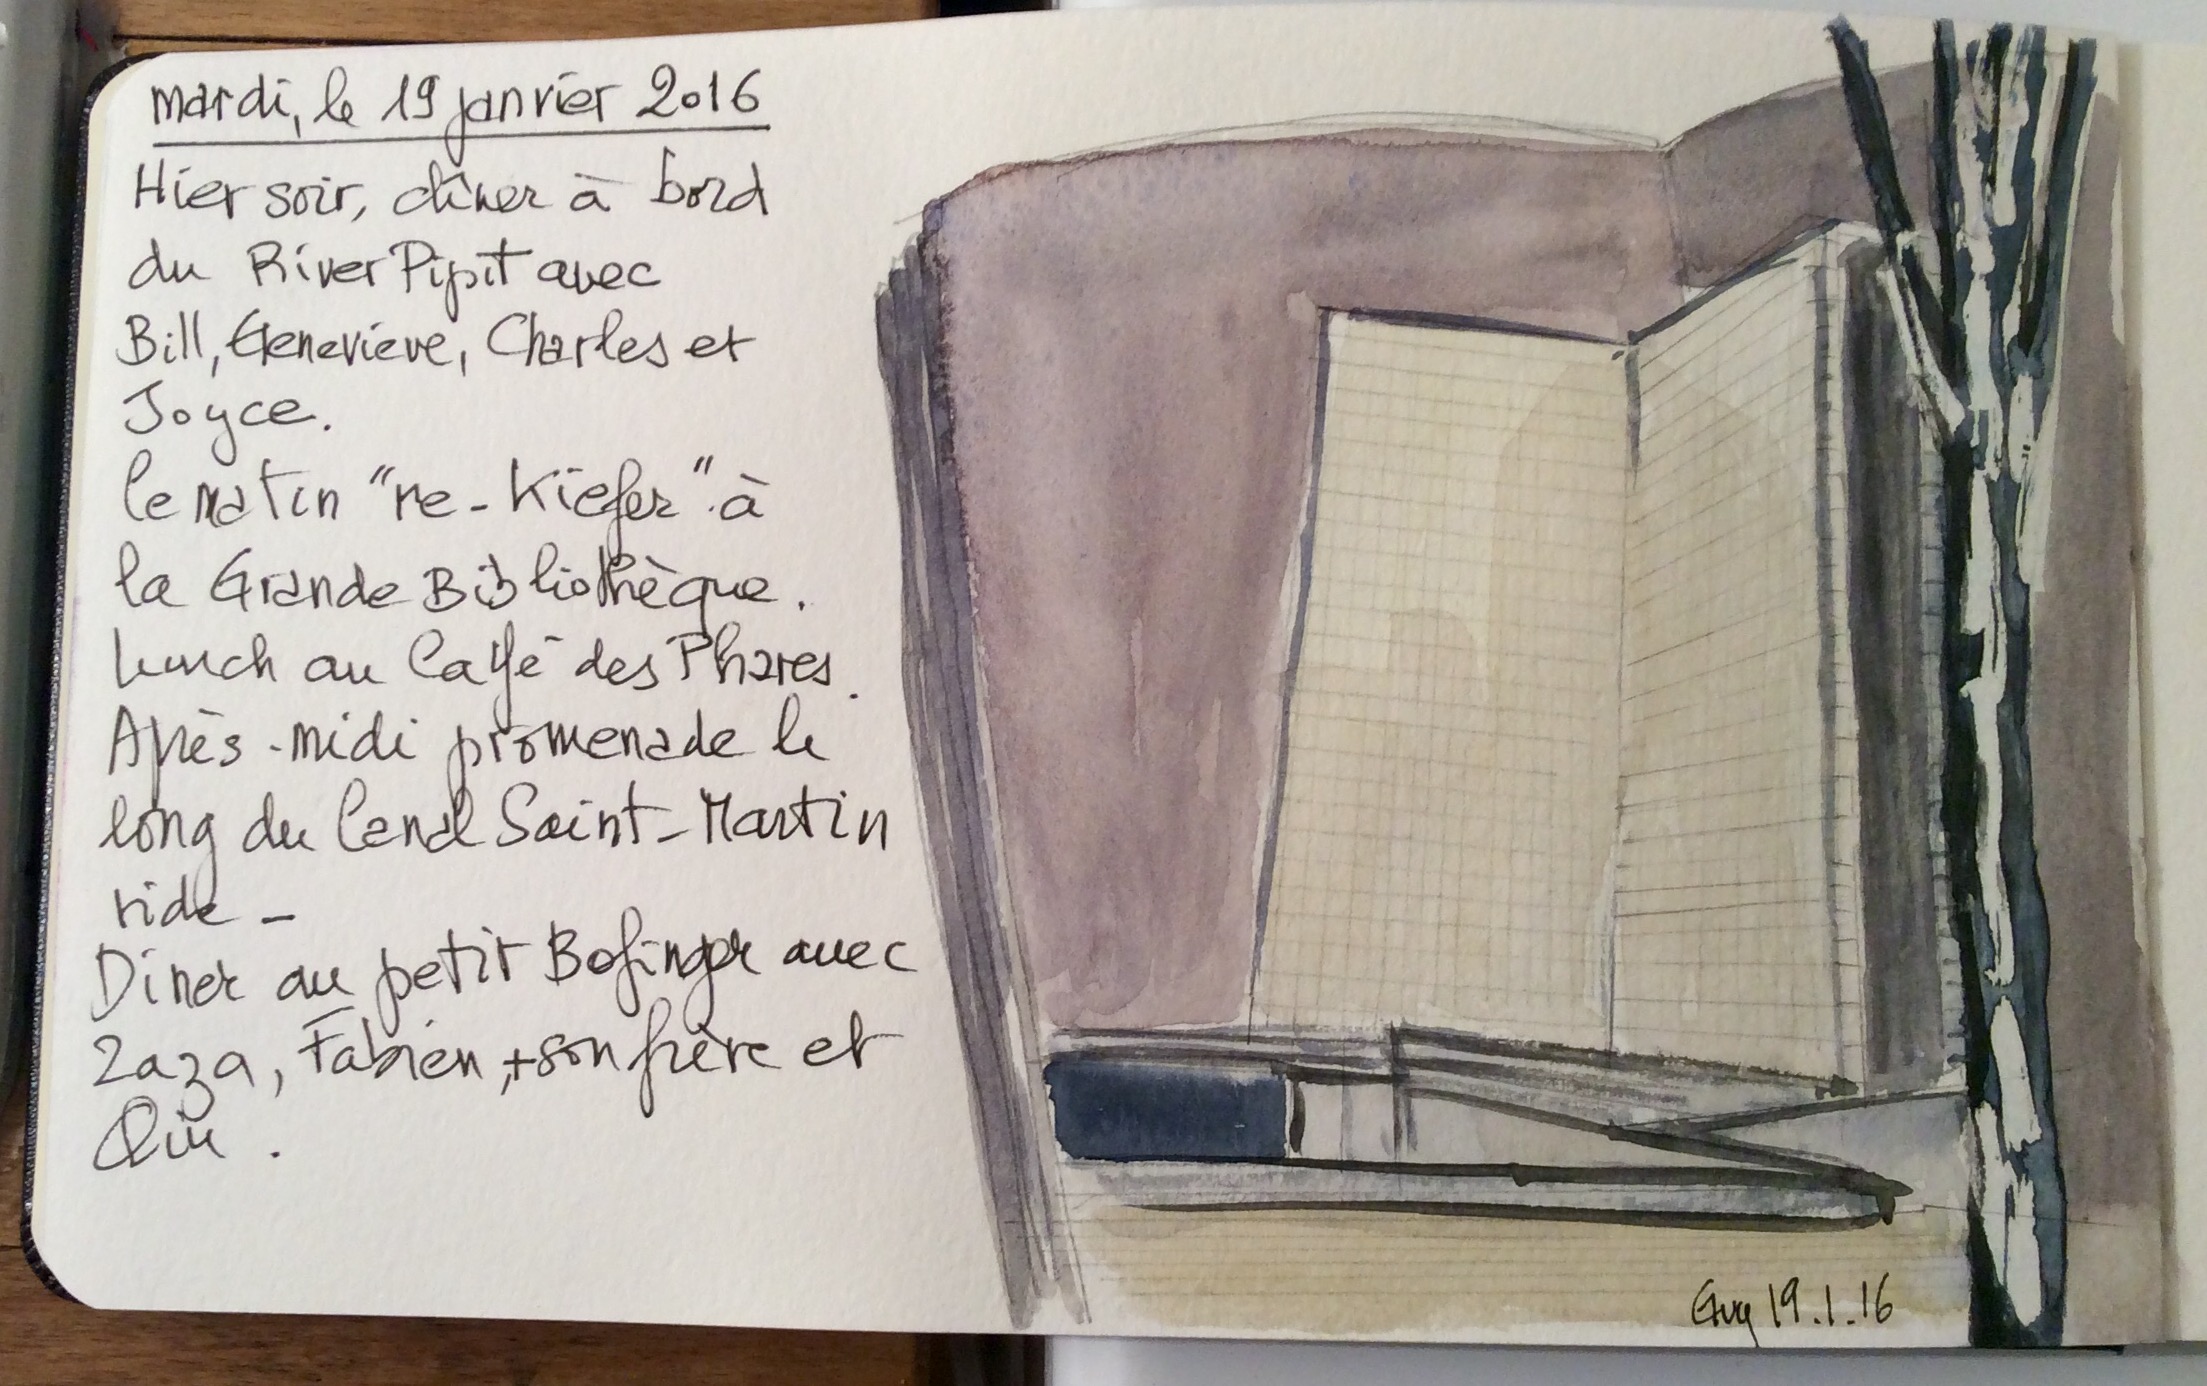 mardi, le 19 janvier 2016
Hier soir, dîner à bord
du River Pipit avec
Bill, Geneviève, Charles et
Joyce.
le matin "re-Kiefer" à
la Grande Bibliothèque.
lunch au Café des Phares.
Après-midi promenade le
long du Canal Saint-Martin
vide -
Diner au petit Bofinger avec
Zaza, Fabien, + son frère et
Guy 19.1.16